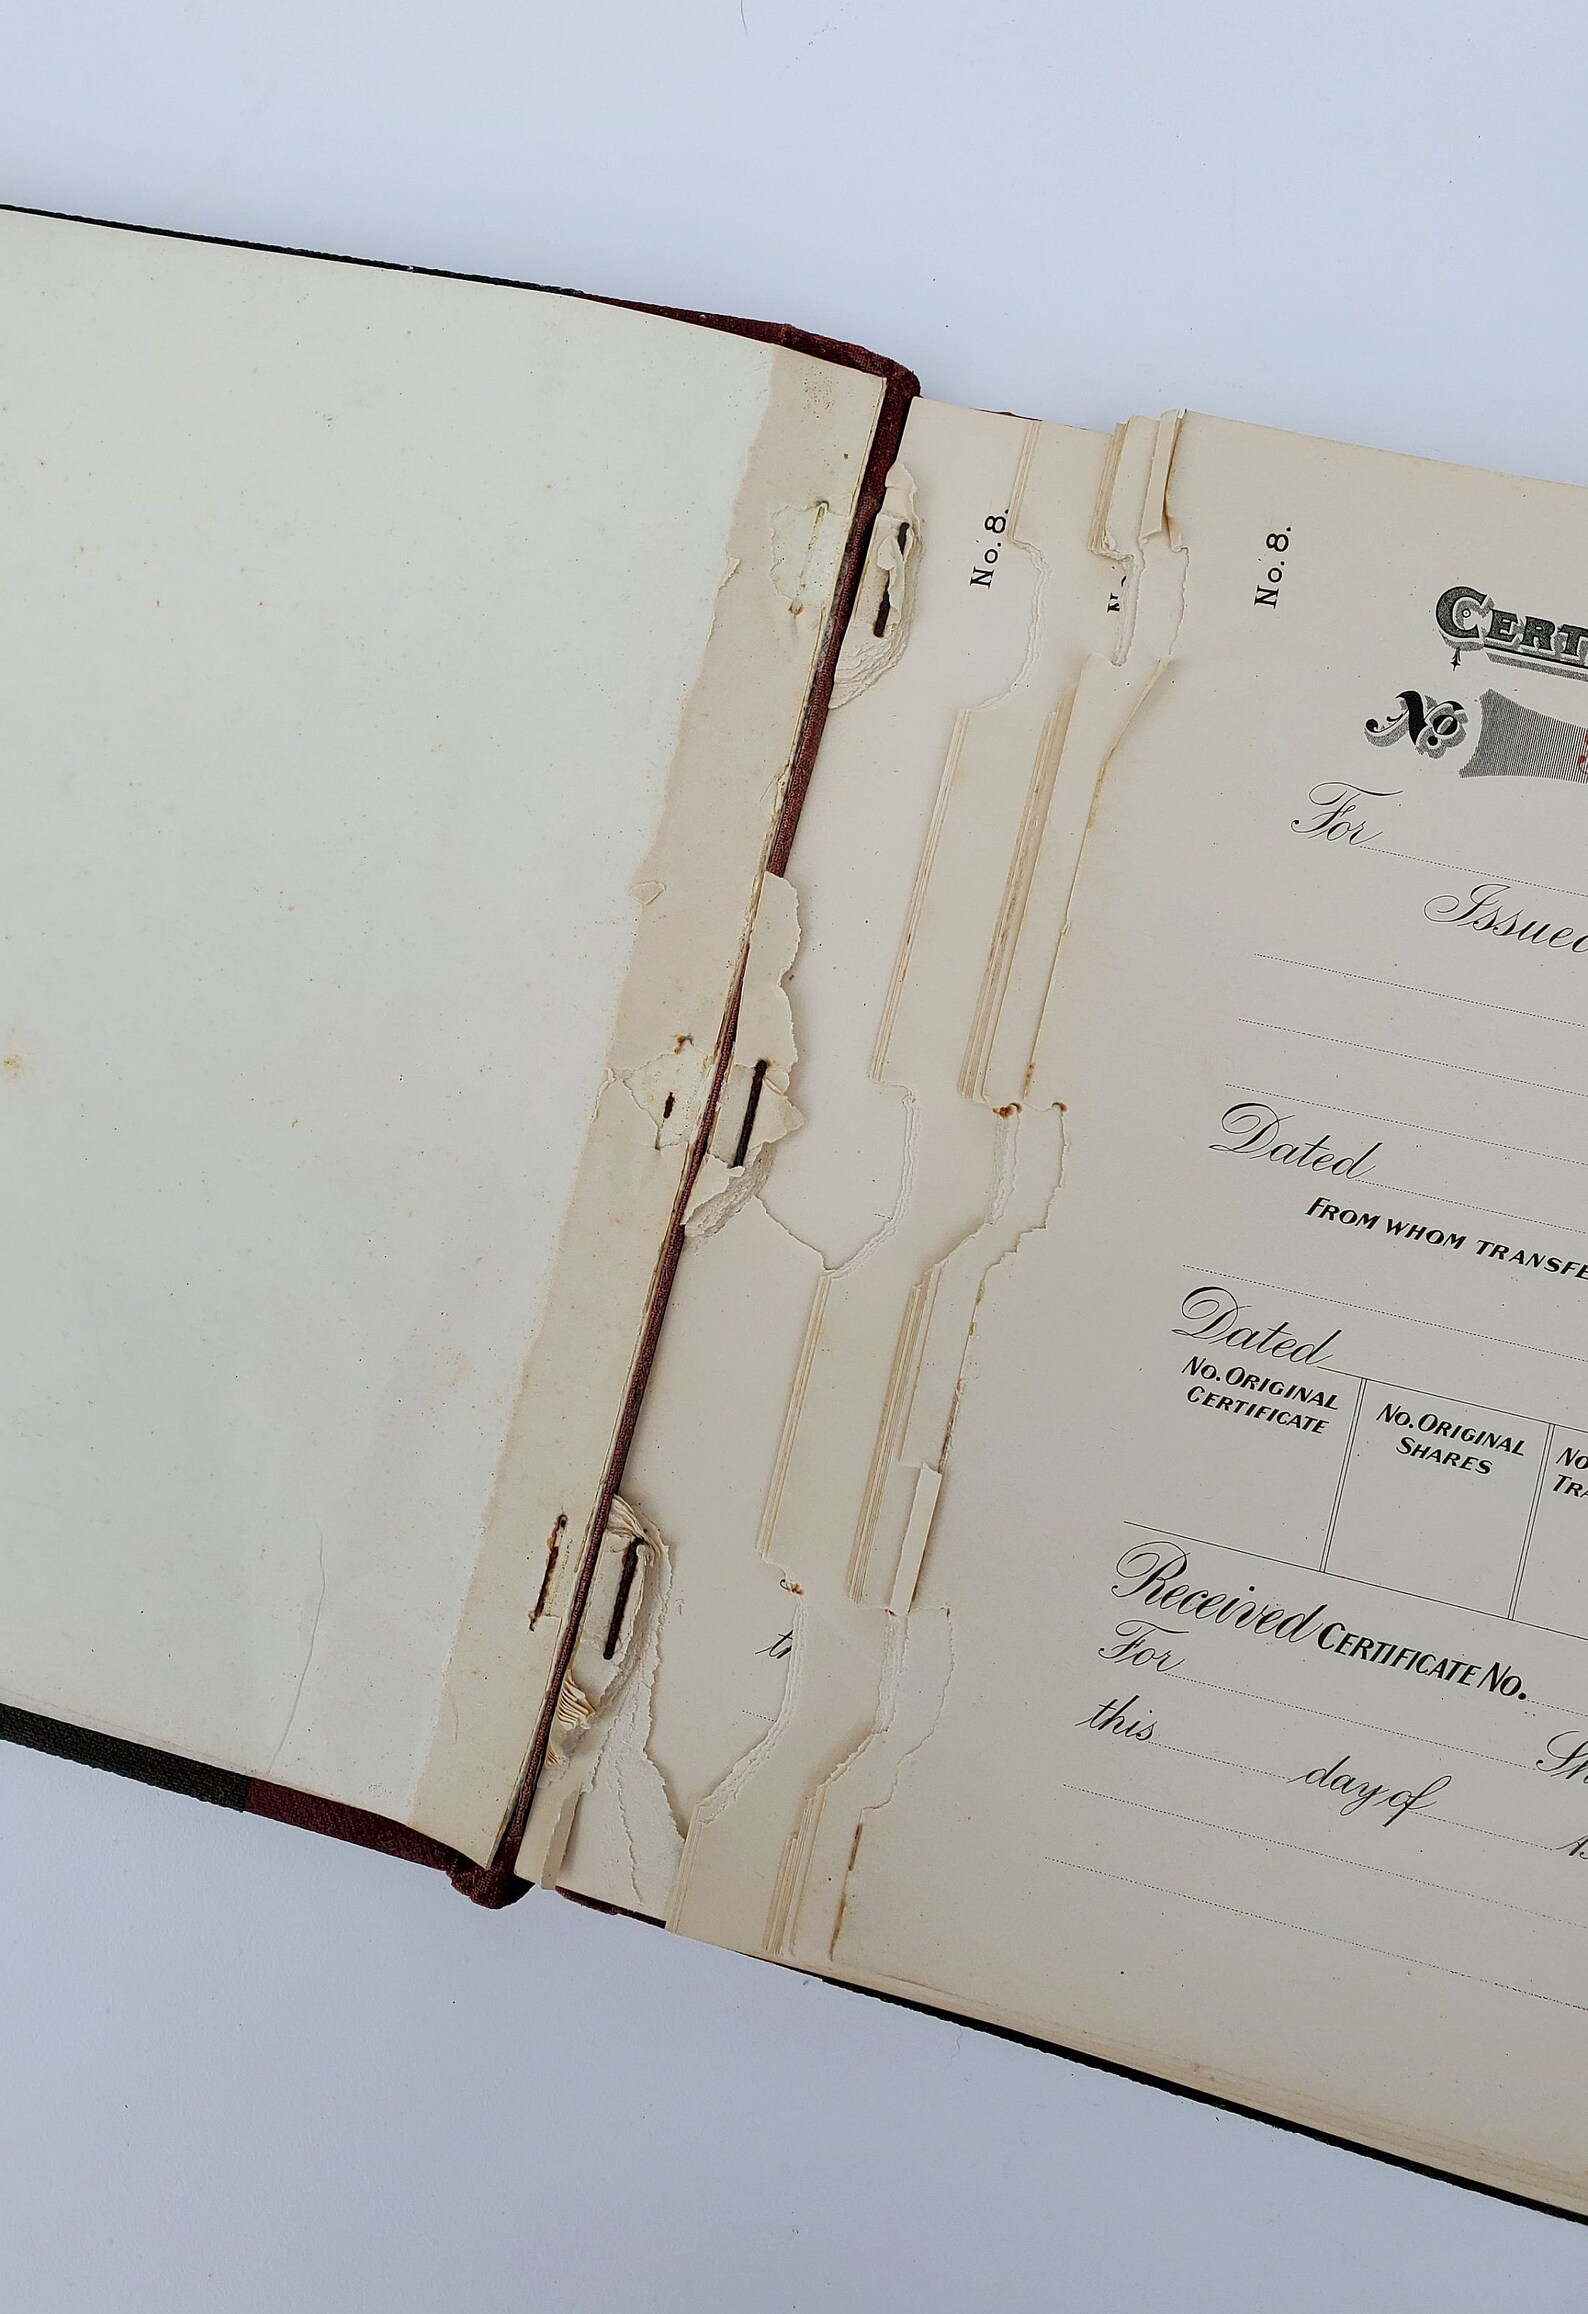 No. 8.
No. 8.
No
For
Issued
Dated
FROM WHOM
Dated
NO. ORIGINAL CERTIFICATE
NO. ORIGINAL SHARES
Received CERTIFICATE NO.
For
this
day of